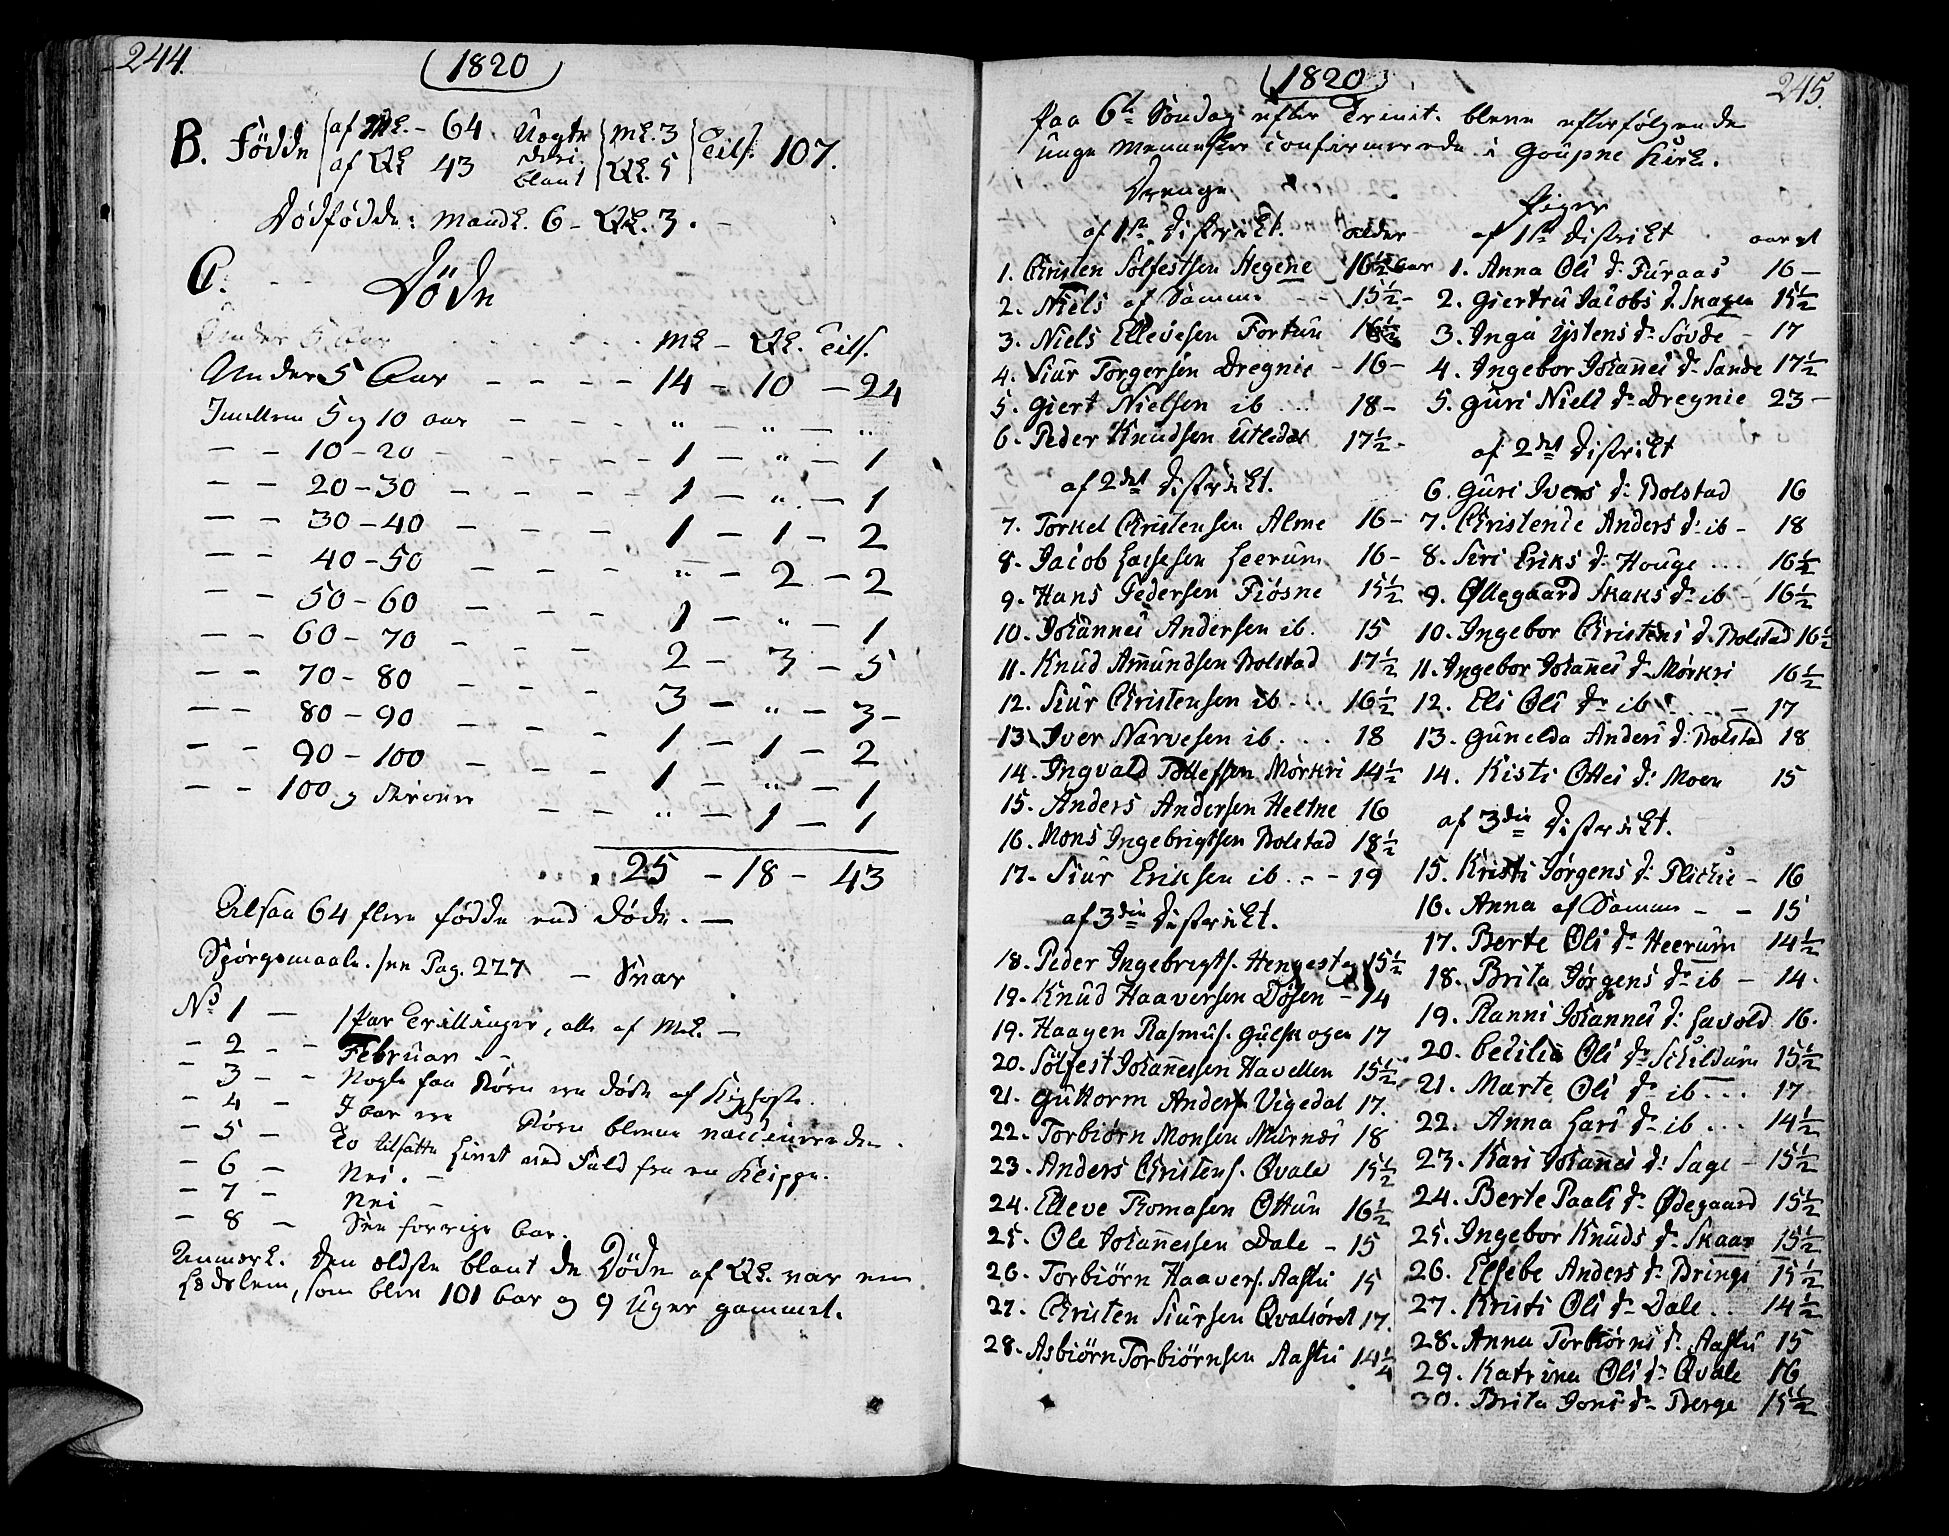 244.
(1820)
B. Födde af Mk. - 64 Uegte Mk. 3 Tils. 107.
af Qk 43 deri blant Qk. 5
Dödfödde: Mandk. 6 - Qk. 3. -
C. Döde
Mk - Qk. Tils.
Under 5 Aar - - - - 14 - 10 - 24
Imellem 5 og 10 aar - - - - " - " - "
- - 10 - 20 - - - - - 1 - " - 1
- - 20 - 30 - - - - 1 - " - 1
- - 30 - 40 - - - - 1 - 1 - 2
- - 40 - 50 - - - " - 2 - 2
- - 50 - 60 - - - - 1 - " - 1
- - 60 - 70 - - - 2 - 3 - 5
- - 70 - 80 - - - 3 - " - 3 -
- - 80 - 90 - - - 1 - 1 - 2
- - 90 - 100 - - - 1 - " - 1
- - 100 og derover - - " - 1 - 1
25 - 18 - 43
Altsaa 64 flere födde end döde. -
Spörgsmaale. see Pag. 227 - Svar
No 1 - 1 Par Trillinger, alle af Mk. -
- 2 - - Februar - -
- 3 - - Nogle faa Börn ere döde af Kighoste.
- 4 - I Aar ere Börn blevne vaccinerede.
- 5 - En tilsatte Livet ved Fald fra en Klippe.
- 6 - Nei. -
- 7 - Nei -
- 8 - See forrige Aar.
Anmerk. Den ældste blant de Döde af Qk. var en
Lædslem, som blev 101 Aar og 9 Uger gammel.
245.
(1820)
Paa 6te Söndag efter Trinit. bleve efterfölgende
unge Mennesker confirmerede i Goupne Kirk.
Drenge
af 1ste Distrikt. alder
1. Christen Solfestsen Hegene 16½ Aar
2. Niels af Samme - - 15½ -
3. Niels Ellevesen Fortun 16½
4. Siur Torgersen Dregnie - 16 -
5. Giert Nielsen ib ... 18 -
6. Peder Knudsen Utledal 17½ -
af 2det Distrikt.
7. Torkel Christensen Alme 16 -
8. Jacob Lassesen Heerum 16 -
9. Hans Pedersen Fiösne 15½
10. Johannes Andersen ib. 15
11. Knud Amundsen Bolstad 17½
12. Siur Christensen ib... 16½
13. Iver Narvesen ib. . . 18
14. Ingvald Tollefsen Mörkri 14½
15. Anders Andersen Heltne 16
16. Mons Ingebrigtsen Bolstad 18½
17. Siur Eriksen ib. - - 19
af 3die Distrikt.
18. Peder Ingebregts. 15½
19. Knud Haaversen Dösen - 14
19. Haagen Rasmus. Gulskogen 17
20. Solfest Johannessen Havellen 15½
21. Guttorm Anders Vigedal 17.
22. Torbiörn Monsen Murnes 18
23. Anders Christens. Qvale 15½
24. Elleve Thomasen Ottun 16½
25. Ole Johannessen Dale - 15
26. Torbiörn Haavers. Aasta 15
27. Christen Siursen 17.
28. Asbiörn Torbiörnsen Aasta 14¼
Piger
af 1ste Distrikt aar gl
1. Anna Ols d: Furaas 16 -
2. Giertru Jacobs d. Skagen 15½
3. Inga Ystens d: Søvde - 17
4. Ingebor Johannes d: Sande 17½
5. Guri Niels d: Dregnie 23 -
af 2det Distrikt
6. Guri Ivers d: Bolstad 16
7. Christence Anders d: ib - 18
8. Siri Eriks d: Houge ... 16½
9. Øllegaard Skaks d: ib - 16½
10. Ingebor Christens d. Bolstad 16½
11. Ingebor Johannes d: Mörkri 16½
12. Eli Ols d: ib . . . - 17
13. Gunelda Anders d: Bolstad 18
14. Kisti Ottes d: Moen 15
af 3die Distrikt.
15. Kristi Jørgens d: 16
16. Anna af Samme - - 15
17. Berte Ols d: Heerum 14½
18. Brita Jørgens d: ib - 14.
19. Ranni Johannes d: Lavold 16.
20. Cecilia Ols d: 15½
21. Marte Ols d: ib ... 17
22. Anna Lars d: ib ... 14½
23. Kari Johannes d: Sage - 15½
24. Berte Paals d: Ødegaard 15½
25. Ingebor Knuds d: Skaar 15½
26. Elsebe Anders d: Bringe 15½
27. Kristi Ols d: Dale . . 14½
28. Anna Torbiörns d: Aasta 15
29. Katrina Ols d: Qvale 16
30. Brita Jons d: Berge 15½